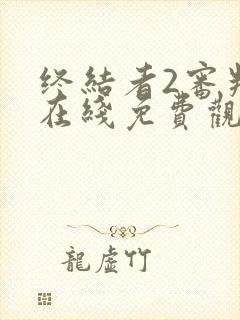 终结者2审判
在綫免費觀
龍虛竹